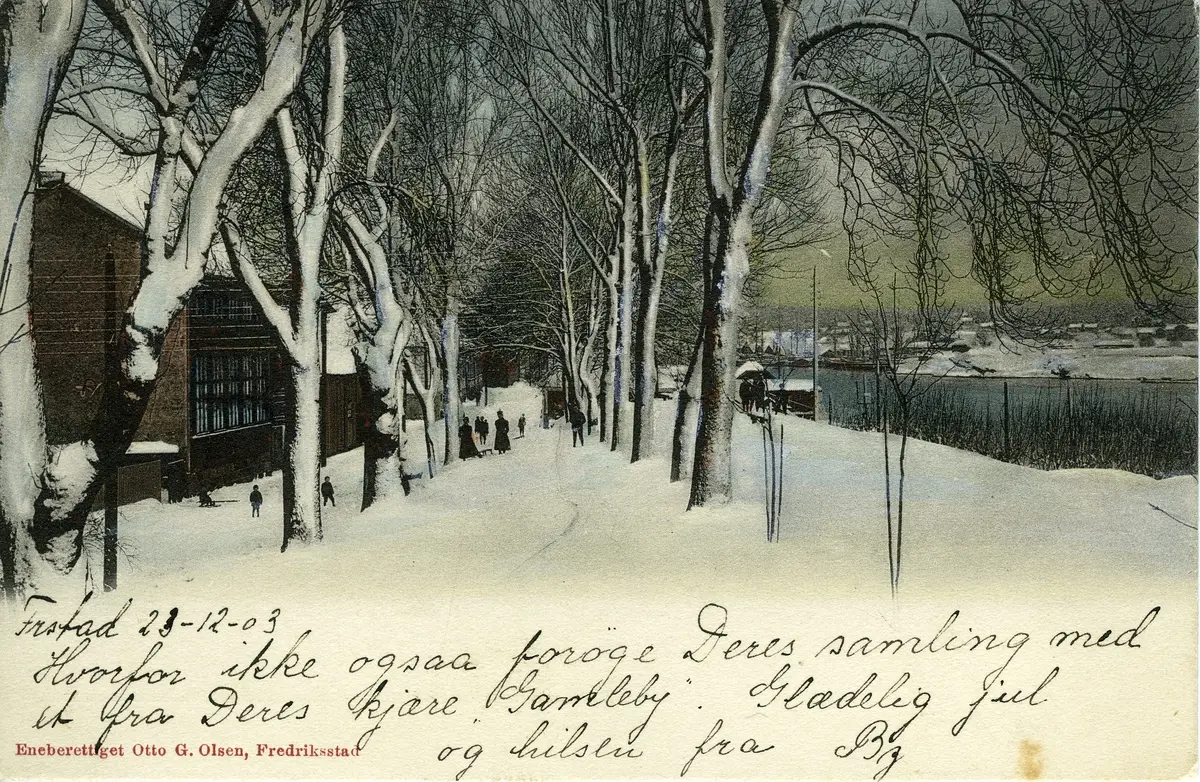 Frstad 23-12-03
Hvorfor ikke ogsaa forøge Deres samling med
et fra Deres kjære "Gamleby". Glædelig jul
og hilsen fra By
Eneberettiget Otto G. Olsen, Fredriksstad